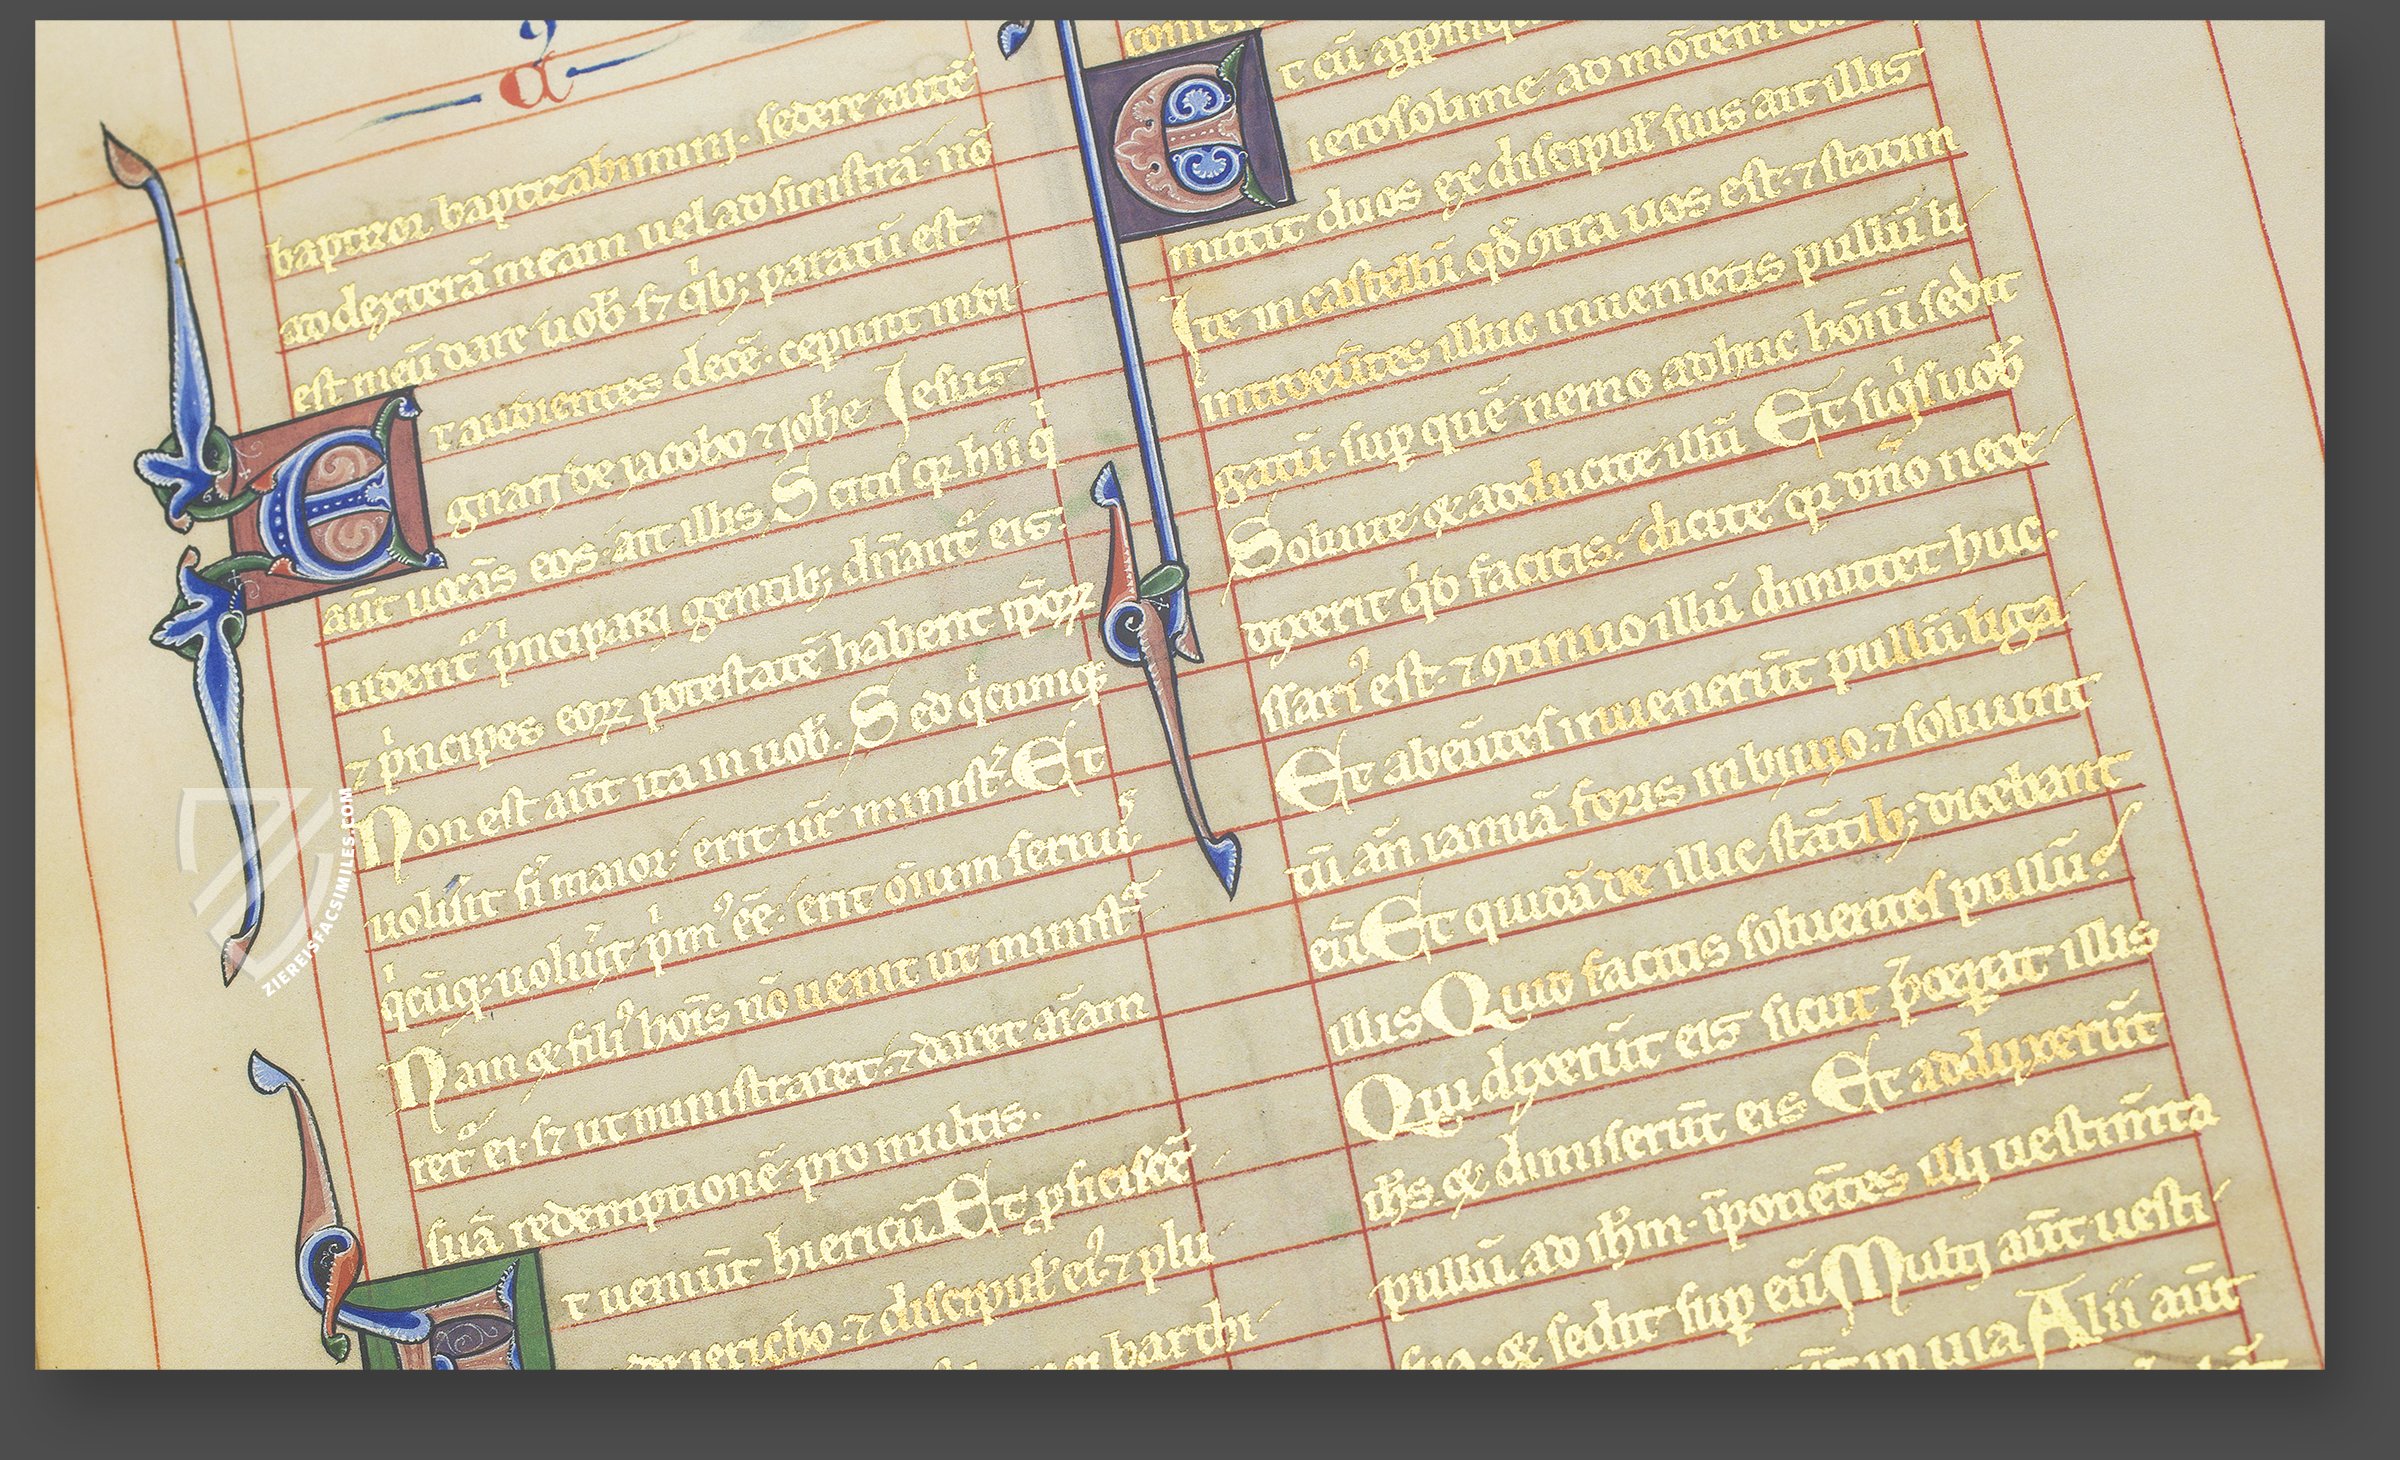 a
baptizor. baptizabimini. sedere autē
ad dexterā meam uel ad sinistrā. nō
est meū dare uob̄ sꝫ q̇bꝫ paratū est.
Et audientes decē. ceperunt indi
gnari de iacobo ⁊ joħe Jesus
aūt uocās eos. ait illis Scitis qꝛ hii q̇
uident᷑ p̍ncipari gentibꝫ dn̄ant᷑ eis.
⁊ p̍ncipes eoꝝ potestatē habent ip̄oꝝ
Non est aūt ita in uob̄. Sed q̇cumqꝫ
uolūit fi᷑ maior. erit ur̄ minist᷑. Et
q̇cūqꝫ uolūit p̍mꝰ eē. erit oīum seruuꝰ
Nam & filiꝰ hoīs nō uenit ut minist᷑
ret᷑ ei. sꝫ ut ministraret. ⁊ daret aīam
suā redemptionē pro multis.
Et ueniūt hiericū. Et ꝓficiscē
iericho. ⁊ discipul̄ eiꝰ. ⁊ plu
barthi
t cū
ierosolime ad mōtem
mittit duos ex discipul̄ suis ait illis
Jte in castellū qd̄ ꝯtra uos est. ⁊ statim
introeūtes illuc inuenietis pullū li
gatū. sup quē nemo adhuc hōīū sedit
Soluite & adducite illū Et siq̇s uob̄
dixerit q̇d facitis. dicite qꝛ dn̄o nece
ssariꝰ est. ⁊ ꝯtinuo illū dimittet huc.
Et abeūtes inuenerūt pullū liga
tū an̄ ianuā foris in biuio. ⁊ soluunt
eū Et quidā de illic stātibꝫ dicebant
illis Quid facitis soluentes pullū?
Qui dixerūt eis sicut p̄ceperat illis
iħs. & dimiserūt eis Et adduxerūt
pullū ad iħm. īponētes illi uestim̄ta
sua. & sedit sup eū Multi aūt uesti
in uia Alii aūt
ZIEREISFACSIMILES.COM